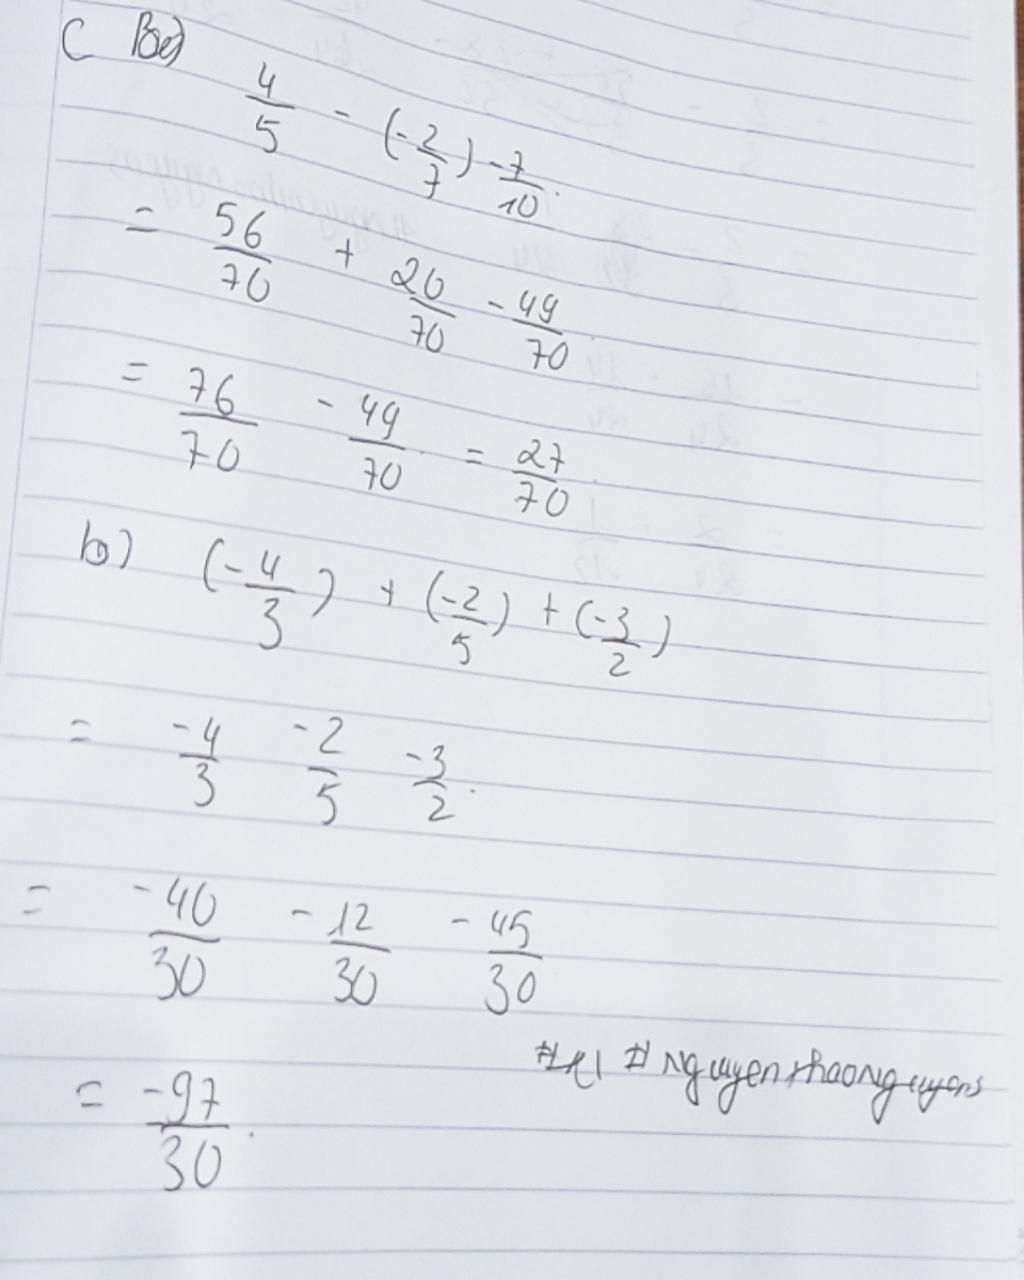 c
4/5 - (-2/7) - 7/10.
= 56/70 + 20/70 - 49/70
= 76/70 - 49/70 = 27/70
b) (-4/3) + (-2/5) + (-3/2)
= -4/3 -2/5 -3/2.
= -40/30 - 12/30 - 45/30
#nguyenthaonguyens
= -97/30.